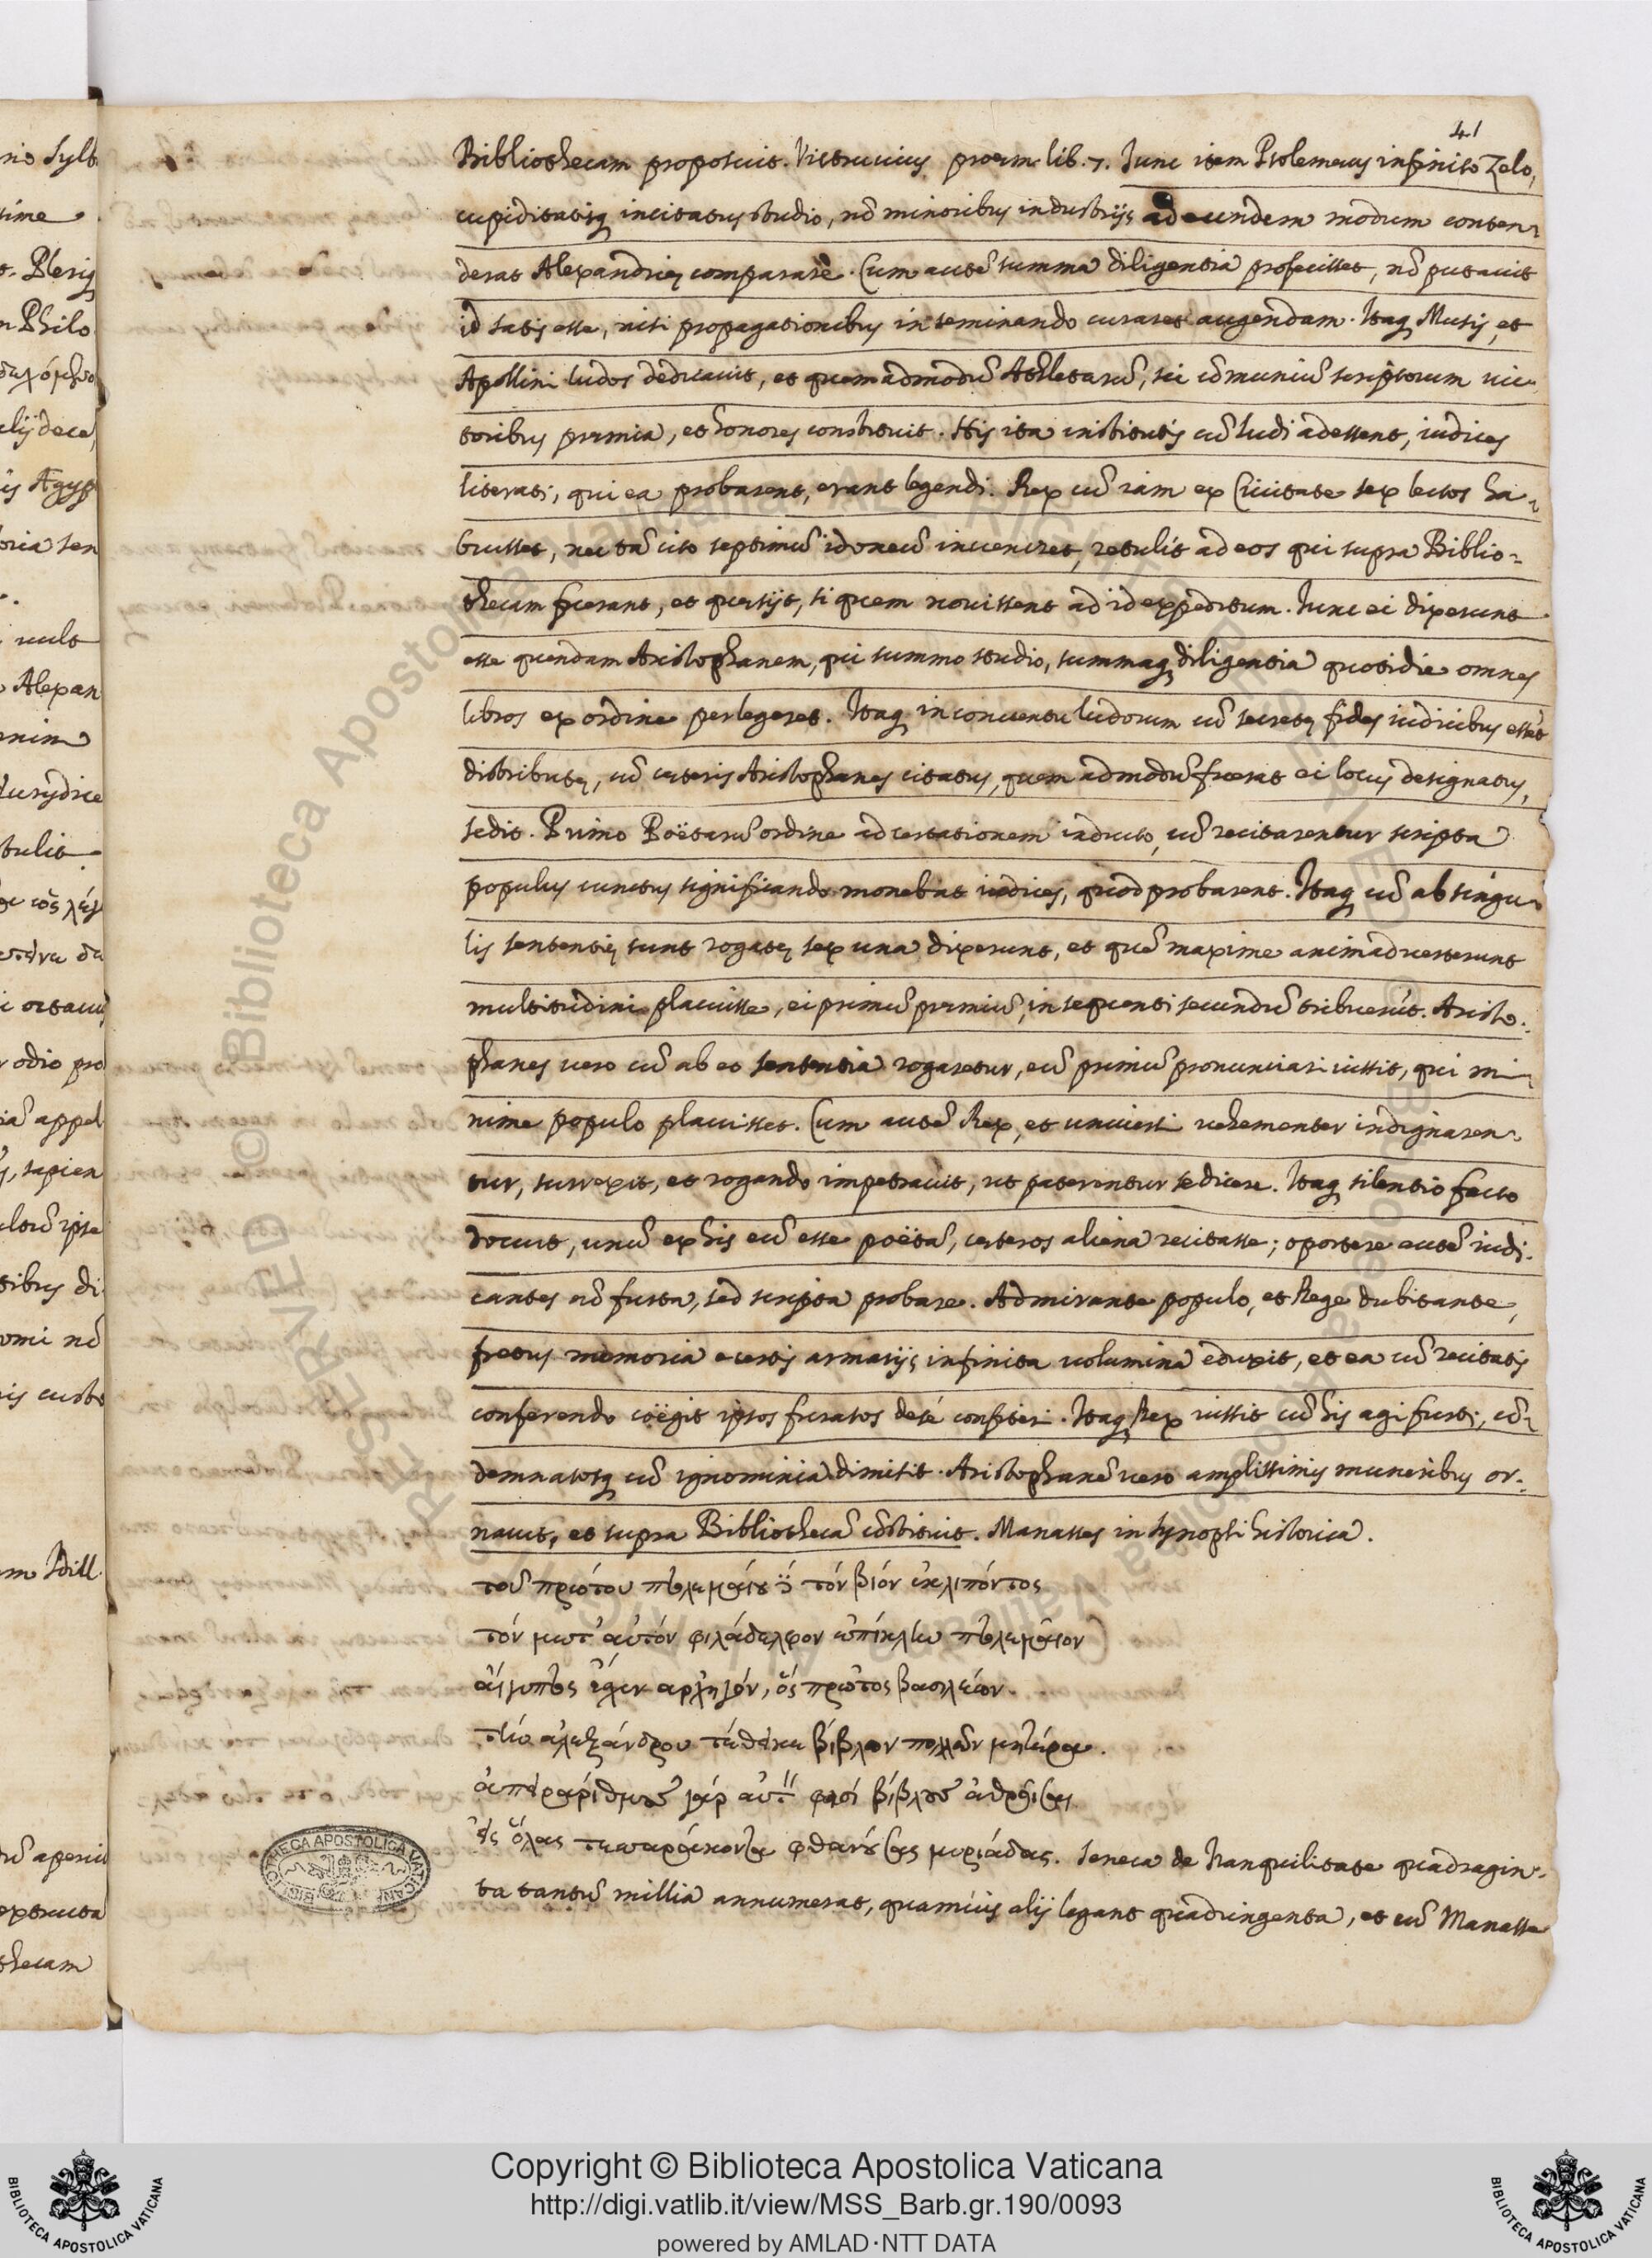 41
Bibliothecam proposuit. Vitruvius proem. lib. 7. Tunc item Ptolemæus infinito Zelo,
cupiditatisq incitatus studio, nō minoribus industrijs ad eundem modum conten-
derat Alexandrię comparare. Cum autē summa diligentia profecisset, nō putavit
id satis esse, nisi propagationibus inseminando curaret augendam. Itaq Musis, et
Apollini ludos dedicavit, et quemadmodū Athletarū, sic cōmuniū scriptorum vic-
toribus præmia, et honores constituit. His ita institutis cū ludi adessent, iudices
literati, qui ea probarent, erant legendi. Rex cū iam ex Civitate sex lectos ha-
buisset, nec tā cito septimū idoneū inveniret, retulit ad eos qui supra Biblio-
thecam fuerant, et quæsijt, si quem novissent ad id expeditum. Tunc ei dixerunt
esse quendam Aristophanem, qui summo studio, summaq diligentia quotidie omnes
libros ex ordine perlegeret. Itaq in conventu ludorum cū secretę sędes iudicibus essēt
distributę, cū cæteris Aristophanes citatus, quemadmodū fuerat ei locus designatus,
sedit. Primo Poëtarū ordine ad certationem inducto, cū recitarentur scripta
populus cunctus significando monebat iudices, quod probarent. Itaq cū ab singu-
lis sententię sunt rogatę sex una dixerunt, et quē maxime animadverterunt
multitudini placuisse, ei primū præmiū, insequenti secundū tribuerūt. Aristo-
phanes vero cū ab eo sententia rogaretur, eū primū pronunciari iussit, qui mi-
nime populo placuisset. Cum autē Rex, et universi vehementer indignaren-
tur, surrexit, et rogando impetravit, ut paterentur se dicere. Itaq silentio facto
docuit, unū ex his eū esse poëtā, cæteros aliena recitasse; oportere autē iudi-
cantes nō furta, sed scripta probare. Admirante populo, et Rege dubitante,
fretus memoria e certis armarijs infinita volumina eduxit, et ea cū recitatis
conferendo coëgit ipsos furatos de sé confiteri. Itaq Rex iussit cū his agi furti, cō-
demnatosq cū ignominia dimisit. Aristophanē vero amplissimis muneribus or-
navit, et supra Bibliothecā cōstituit. Manasses in synopsi historica.
τοῦ πρώτου πτολεμαίου δὲ τόν βιόν ἐκλιπόντος
τόν μετ' αὐτόν φιλάδελφον ἐπίκλην πτολεμαῖον
αἴγυπτος εἶχεν αρχηγόν, ὅς πρῶτος βασιλέων
τήν αλεξάνδρου τέθεικε βίβλων πολλῶν μητέρα.
ἀπειραρίθμους γάρ αὐτὴ φασί βίβλους ἀθροῖσαι
εἰς ὅλας τεσσαράκοντα φθανούσας μυριάδας. Seneca de tranquilitate quadragin-
ta tantū millia annumerat, quamvis alij legant quadringenta, et cū Manasse
BIBLIOTHECA APOSTOLICA VATICANA
no Sylb
time
Plerig
Philo
decē
Ægyp
oria sen
vult
Alexan
nim
Eurydice
tulit
octavu
odio pro
appel
sapien
ipse
tibus di
nō
custo
Idill.
aperui
extructa
thecam
RESERVED © Biblioteca Apostolica Vaticana. ALL RIGHTS RESERVED © Biblioteca Apostolica Vaticana
Copyright © Biblioteca Apostolica Vaticana
http://digi.vatlib.it/view/MSS_Barb.gr.190/0093
powered by AMLAD·NTT DATA
BIBLIOTECA APOSTOLICA VATICANA
BIBLIOTECA APOSTOLICA VATICANA